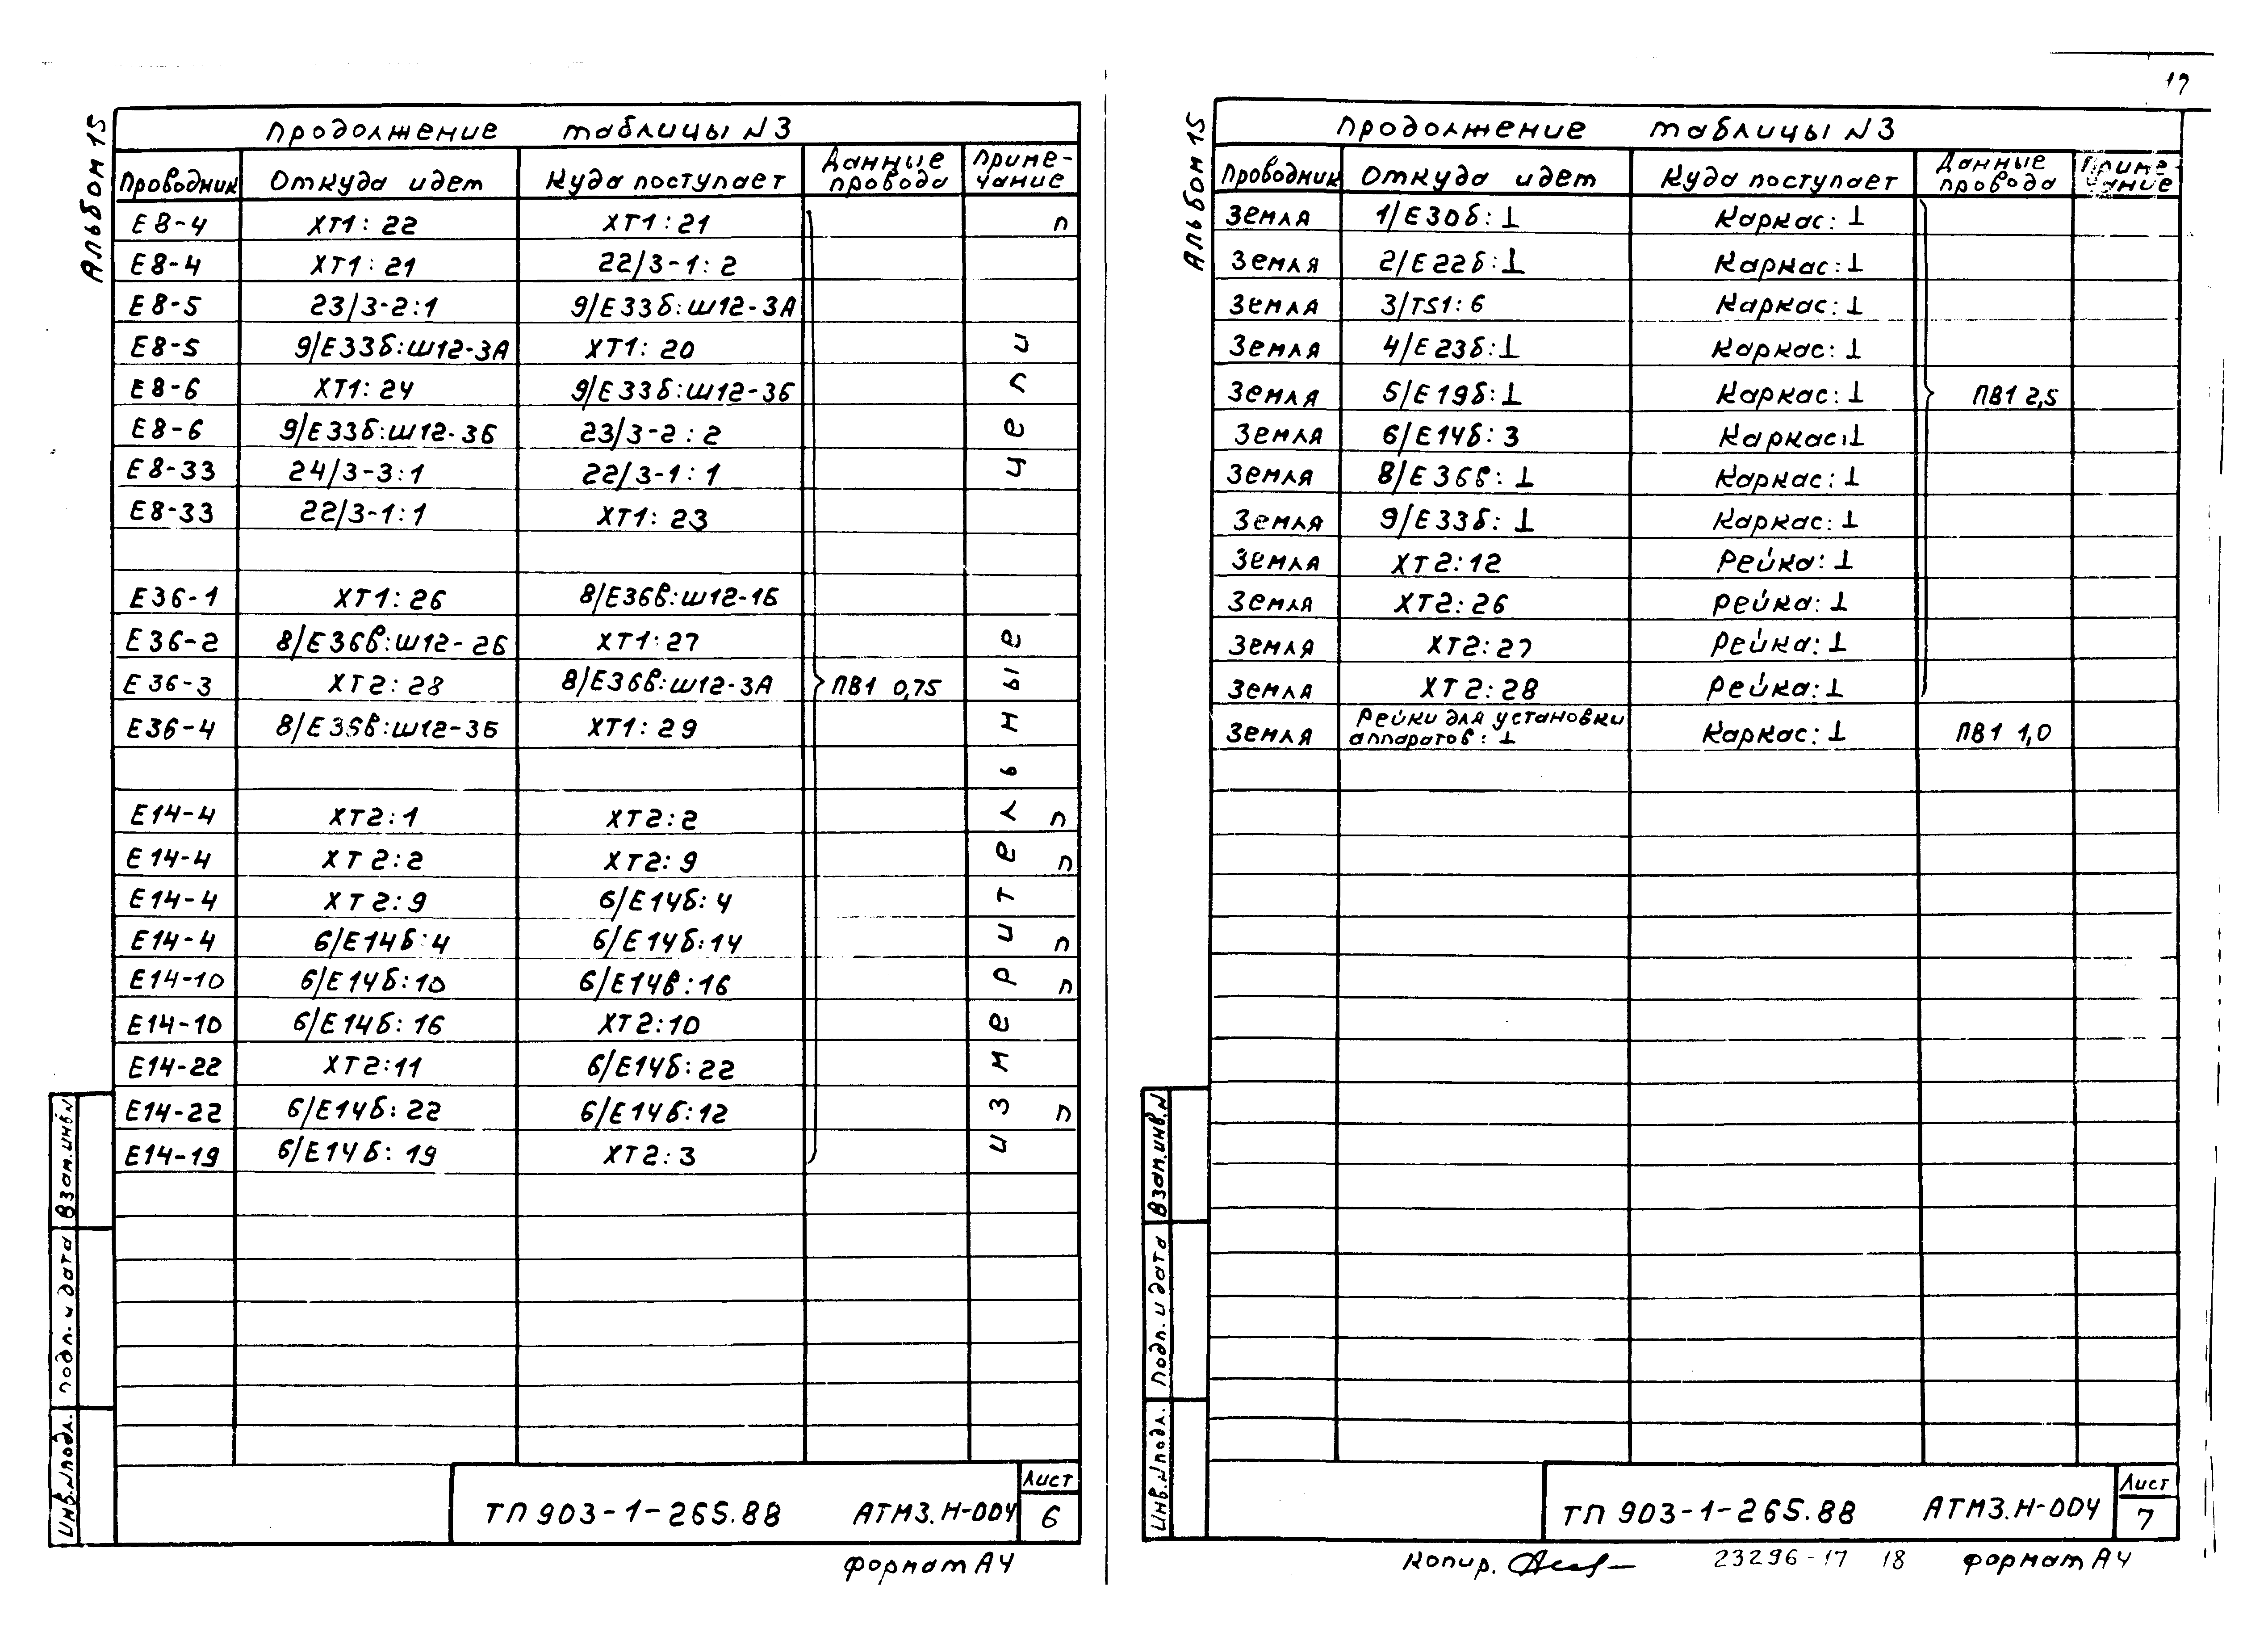 17
Альбом 15
Продолжение таблицы N3
Проводник Откуда идет Куда поступает Данные провода Приме-чание
E8-4 XT1:22 XT1:21 п
E8-4 XT1:21 22/3-1:2
E8-5 23/3-2:1 9/E33б:Ш12-3А
E8-5 9/E33б:Ш12-3А XT1:20
E8-6 XT1:24 9/E33б:Ш12-3Б
E8-6 9/E33б:Ш12-3Б 23/3-2:2
E8-33 24/3-3:1 22/3-1:1
E8-33 22/3-1:1 XT1:23
E36-1 XT1:26 8/E36в:Ш12-1Б
E36-2 8/E36в:Ш12-2Б XT1:27
E36-3 XT2:28 8/E36в:Ш12-3А ПВ1 0,75
E36-4 8/E36в:Ш12-3Б XT1:29
E14-4 XT2:1 XT2:2 п
E14-4 XT2:2 XT2:9 п
E14-4 XT2:9 6/E14б:4
E14-4 6/E14б:4 6/E14б:14 п
E14-10 6/E14б:10 6/E14в:16 п
E14-10 6/E14б:16 XT2:10
E14-22 XT2:11 6/E14б:22
E14-22 6/E14б:22 6/E14б:12 п
E14-19 6/E14б:19 XT2:3
Измерительные цепи
Взам.инв.N
Подп. и дата
Инв.Nподл.
ТП 903-1-265.88 АТМ3.Н-004 Лист 6
Формат А4
Альбом 15
Продолжение таблицы N3
Проводник Откуда идет Куда поступает Данные провода Приме-чание
Земля 1/E30б:⊥ Каркас:⊥
Земля 2/E22б:⊥ Каркас:⊥
Земля 3/TS1:6 Каркас:⊥
Земля 4/E23б:⊥ Каркас:⊥
Земля 5/E19б:⊥ Каркас:⊥ ПВ1 2,5
Земля 6/E14б:3 Каркас:⊥
Земля 8/E36в:⊥ Каркас:⊥
Земля 9/E33б:⊥ Каркас:⊥
Земля XT2:12 Рейка:⊥
Земля XT2:26 Рейка:⊥
Земля XT2:27 Рейка:⊥
Земля XT2:28 Рейка:⊥
Земля Рейки для установки аппаратов:⊥ Каркас:⊥ ПВ1 1,0
Взам.инв.N
Подп. и дата
Инв.Nподл.
ТП 903-1-265.88 АТМ3.Н-004 Лист 7
Копир. 23296-17 18 Формат А4